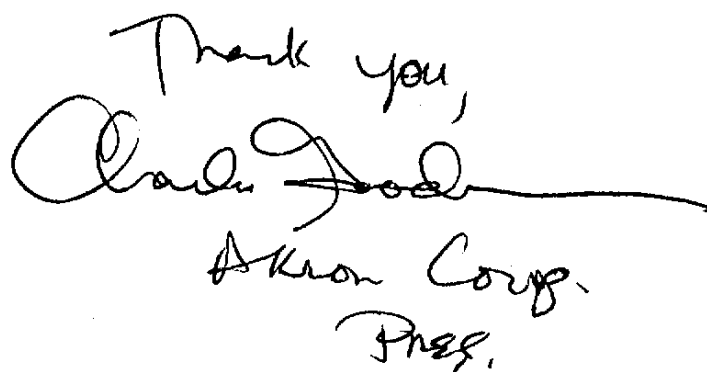 Thank you,
Charles
Akron Corp.
Pres.